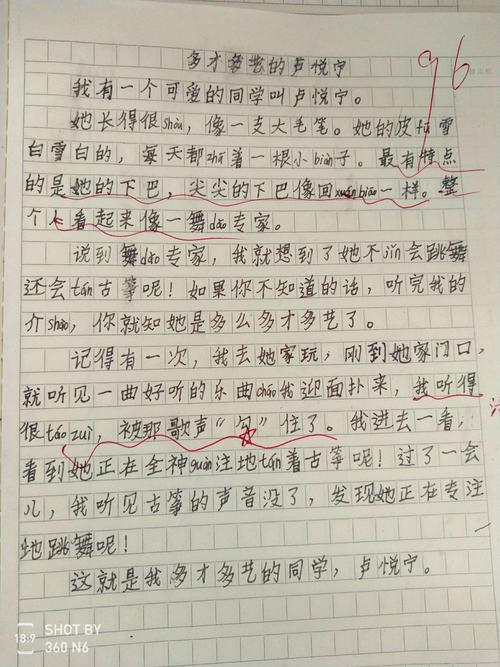 多才多艺的卢悦宁
96
我有一个可爱的同学叫卢悦宁。
她长得很shòu，像一支大毛笔。她的皮fū雪
白雪白的，每天都zhā着一根小biàn子。最有特点
的是她的下巴，尖尖的下巴像回xuánbiāo一样。整
个人看起来像一舞dǎo专家。
说到舞dǎo专家，我就想到了她不jǐn会跳舞
还会tán古筝呢！如果你不知道的话，听完我的
介shào，你就知她是多么多才多艺了。
记得有一次，我去她家玩，刚到她家门口，
就听见一曲好听的乐曲cháo我迎面扑来，我听得
很táo zuì，被那歌声“勾”住了。我进去一看，
看到她正在全神guàn注地tán着古筝呢！过了一会
儿，我听见古筝的声音没了，发现她正在专注
地跳舞呢！
这就是我多才多艺的同学，卢悦宁。
18:9
SHOT BY
360 N6